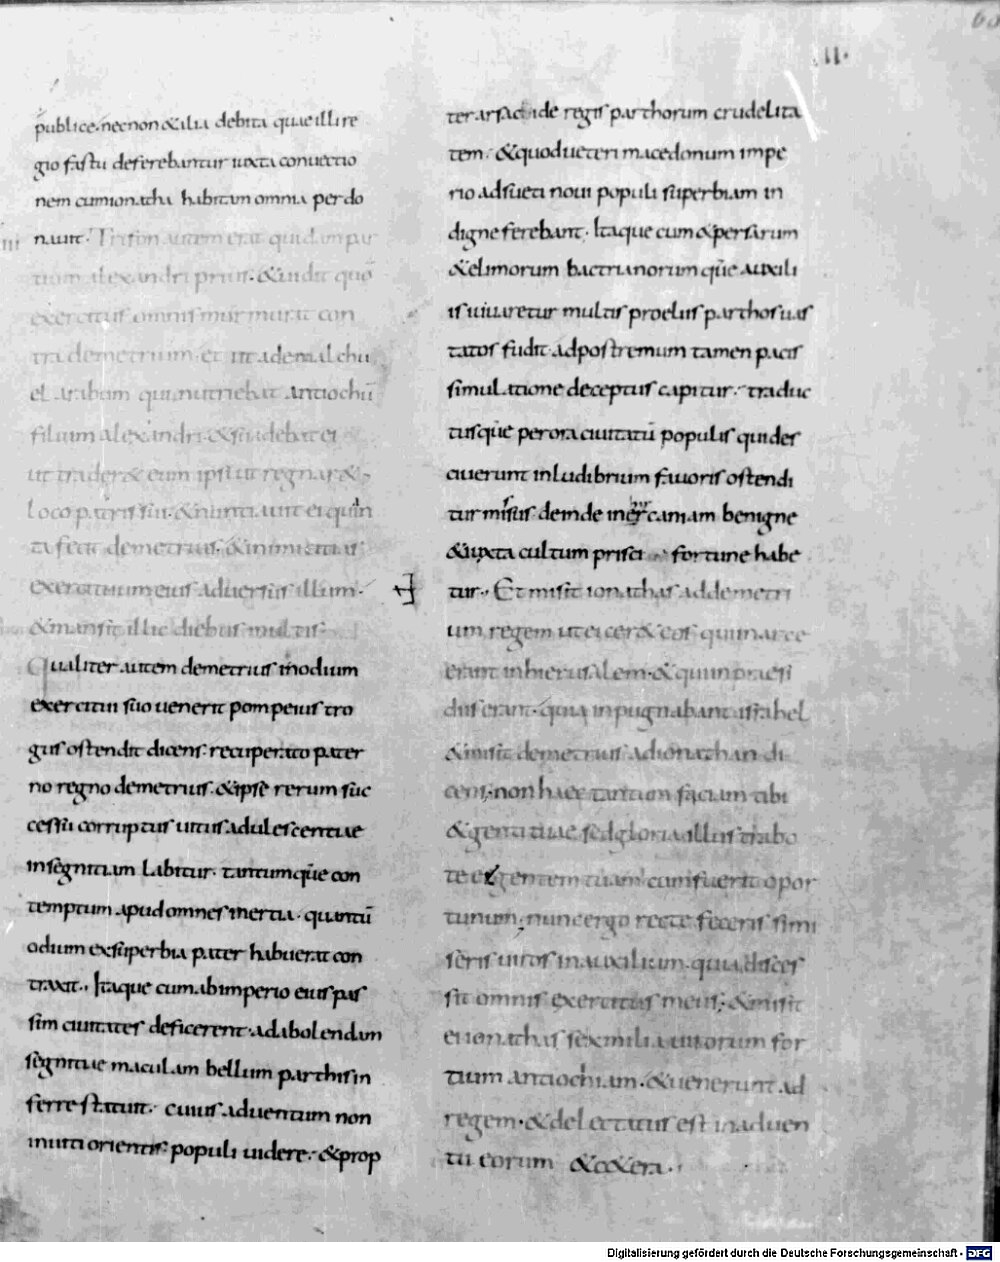 60
II.
publice. necnon & alia debita quae ille re
gio fastu deferebantur iuxta conuectio
nem cum ionatha habitam omnia perdo
III nauit. Trifon autem erat quidam par
tium alexandri prius. & uidit quō
exercitus omnis murmurat con
tra demetrium. et iit ad emalchu
el arabum qui nutriebat antiochū
filium alexandri. & suadebat ei
ut trader& eum ipsi ut regnar&
loco patris sui. & nuntiauit ei quan
ta fecit demetrius. & inimicitias
exercituum eius aduersus illum.
& mansit illic diebus multis.
Qualiter autem demetrius in odium
exercitui suo uenerit pompeius tro
gus ostendit dicens. recuperato pater
no regno demetrius. & ipse rerum suc
cessu corruptus uitiis adulescentiae
in segnitiam labitur. tantumq̄ue con
temptum apud omnes inertia. quantū
odium ex superbia pater habuerat con
traxit. Itaque cum ab imperio eius pas
sim ciuitates deficerent. ad abolendam
segnitiae maculam bellum parthis in
ferre statuit. cuius aduentum non
inuiti orientis populi uidere. & prop
ter arsacide regis parthorum crudelita
tem. & quod ueteri macedonum impe
rio adsueti noui populi superbiam in
digne ferebant. Itaque cum & persarum
& elimorum bactrianorum q̄ue auxili
is iuuaretur multis proeliis parthos uas
tatos fudit. ad postremum tamen pacis
simulatione deceptus capitur. traduc
tusq̄ue per ora ciuitatū populis qui des
ciuerunt in ludibrium fauoris ostendi
tur missus deinde in hyrcaniam benigne
& iuxta cultum prisci fortune habe
tur. Et misit ionathas ad demetri
um regem ut eicer& eos qui in arce
erant in hierusalem. & qui in praesi
diis erant. quia inpugnabant israhel
& misit demetrius ad ionathan di
cens. non haec tantum faciam tibi
& genti tuae sed gloria illustrabo
te et gentem tuam cum fuerit opor
tunum. nunc ergo recte feceris si mi
seris uiros in auxilium. quia disces
sit omnis exercitus meus. & misit
ei ionathas sex milia uirorum for
tium antiochiam. & uenerunt ad
regem. & delectatus est in aduen
tu eorum & c&era.
Digitalisierung gefördert durch die Deutsche Forschungsgemeinschaft - DFG